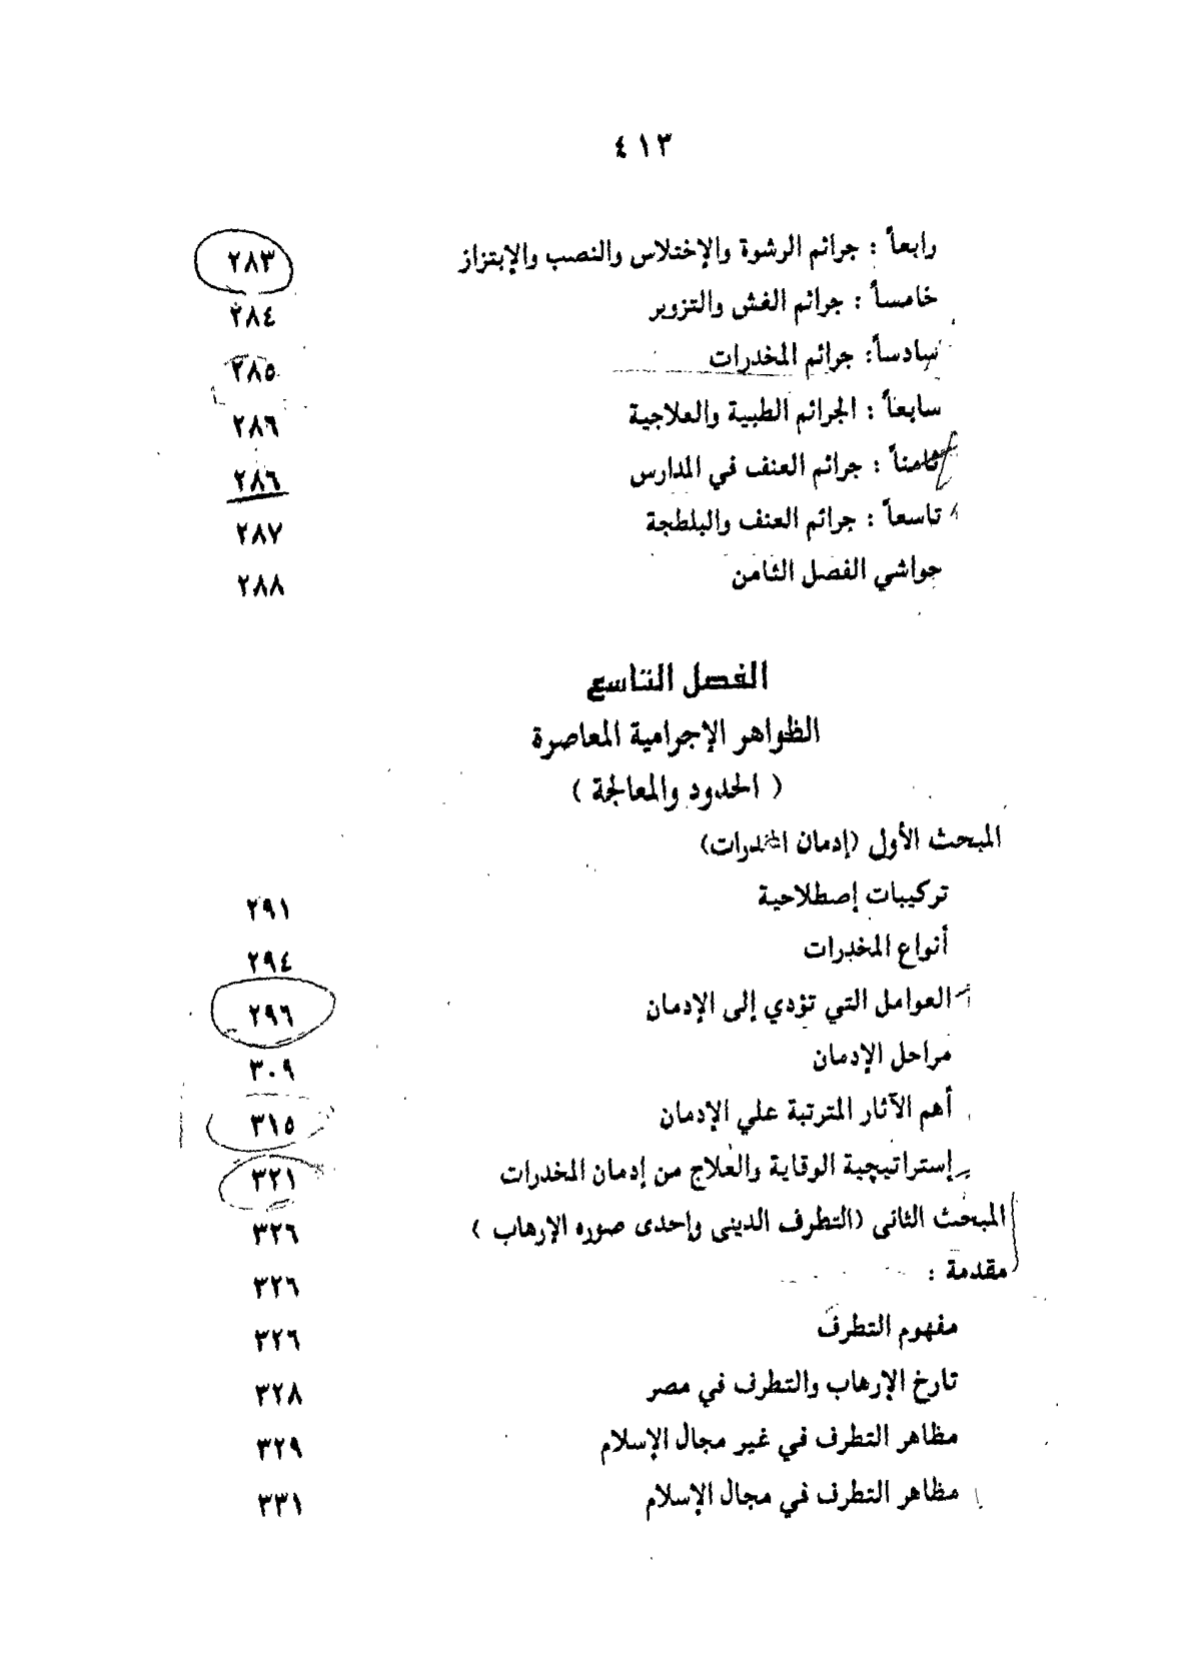 ٤١٣
رابعاً : جرائم الرشوة والإختلاس والنصب والإبتزاز ٢٨٣
خامساً : جرائم الغش والتزوير ٢٨٤
سادساً: جرائم المخدرات ٢٨٥
سابعاً : الجرائم الطبية والعلاجية ٢٨٦
ثامناً : جرائم العنف في المدارس ٢٨٦
تاسعاً : جرائم العنف والبلطجة ٢٨٧
حواشي الفصل الثامن ٢٨٨
الفصل التاسع
الظواهر الإجرامية المعاصرة
( الحدود والمعالجة )
المبحث الأول (إدمان المخدرات)
تركيبات إصطلاحية ٢٩١
أنواع المخدرات ٢٩٤
العوامل التي تؤدي إلى الإدمان ٢٩٦
مراحل الإدمان ٣٠٩
أهم الآثار المترتبة علي الإدمان ٣١٥
إستراتيچية الوقاية والعلاج من إدمان المخدرات ٣٢١
المبحث الثانى (التطرف الدينى وإحدى صوره الإرهاب ) ٣٢٦
مقدمة : ٣٢٦
مفهوم التطرف ٣٢٦
تارخ الإرهاب والتطرف في مصر ٣٢٨
مظاهر التطرف في غير مجال الإسلام ٣٢٩
مظاهر التطرف في مجال الإسلام ٣٣١